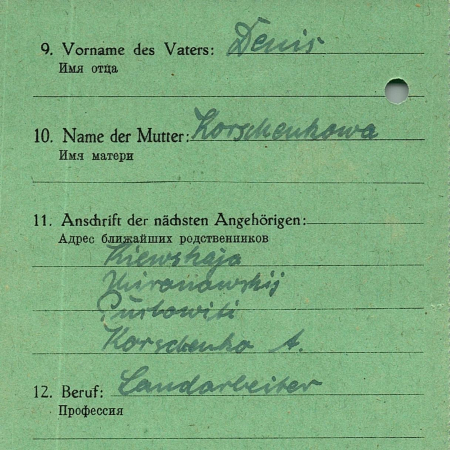 9. Vorname des Vaters: Denis
Имя отца
10. Name der Mutter: Korschenkowa
Имя матери
11. Anschrift der nächsten Angehörigen:
Адрес ближайших родственников
Kiewskaja
Korschenko A.
12. Beruf: Landarbeiter
Профессия